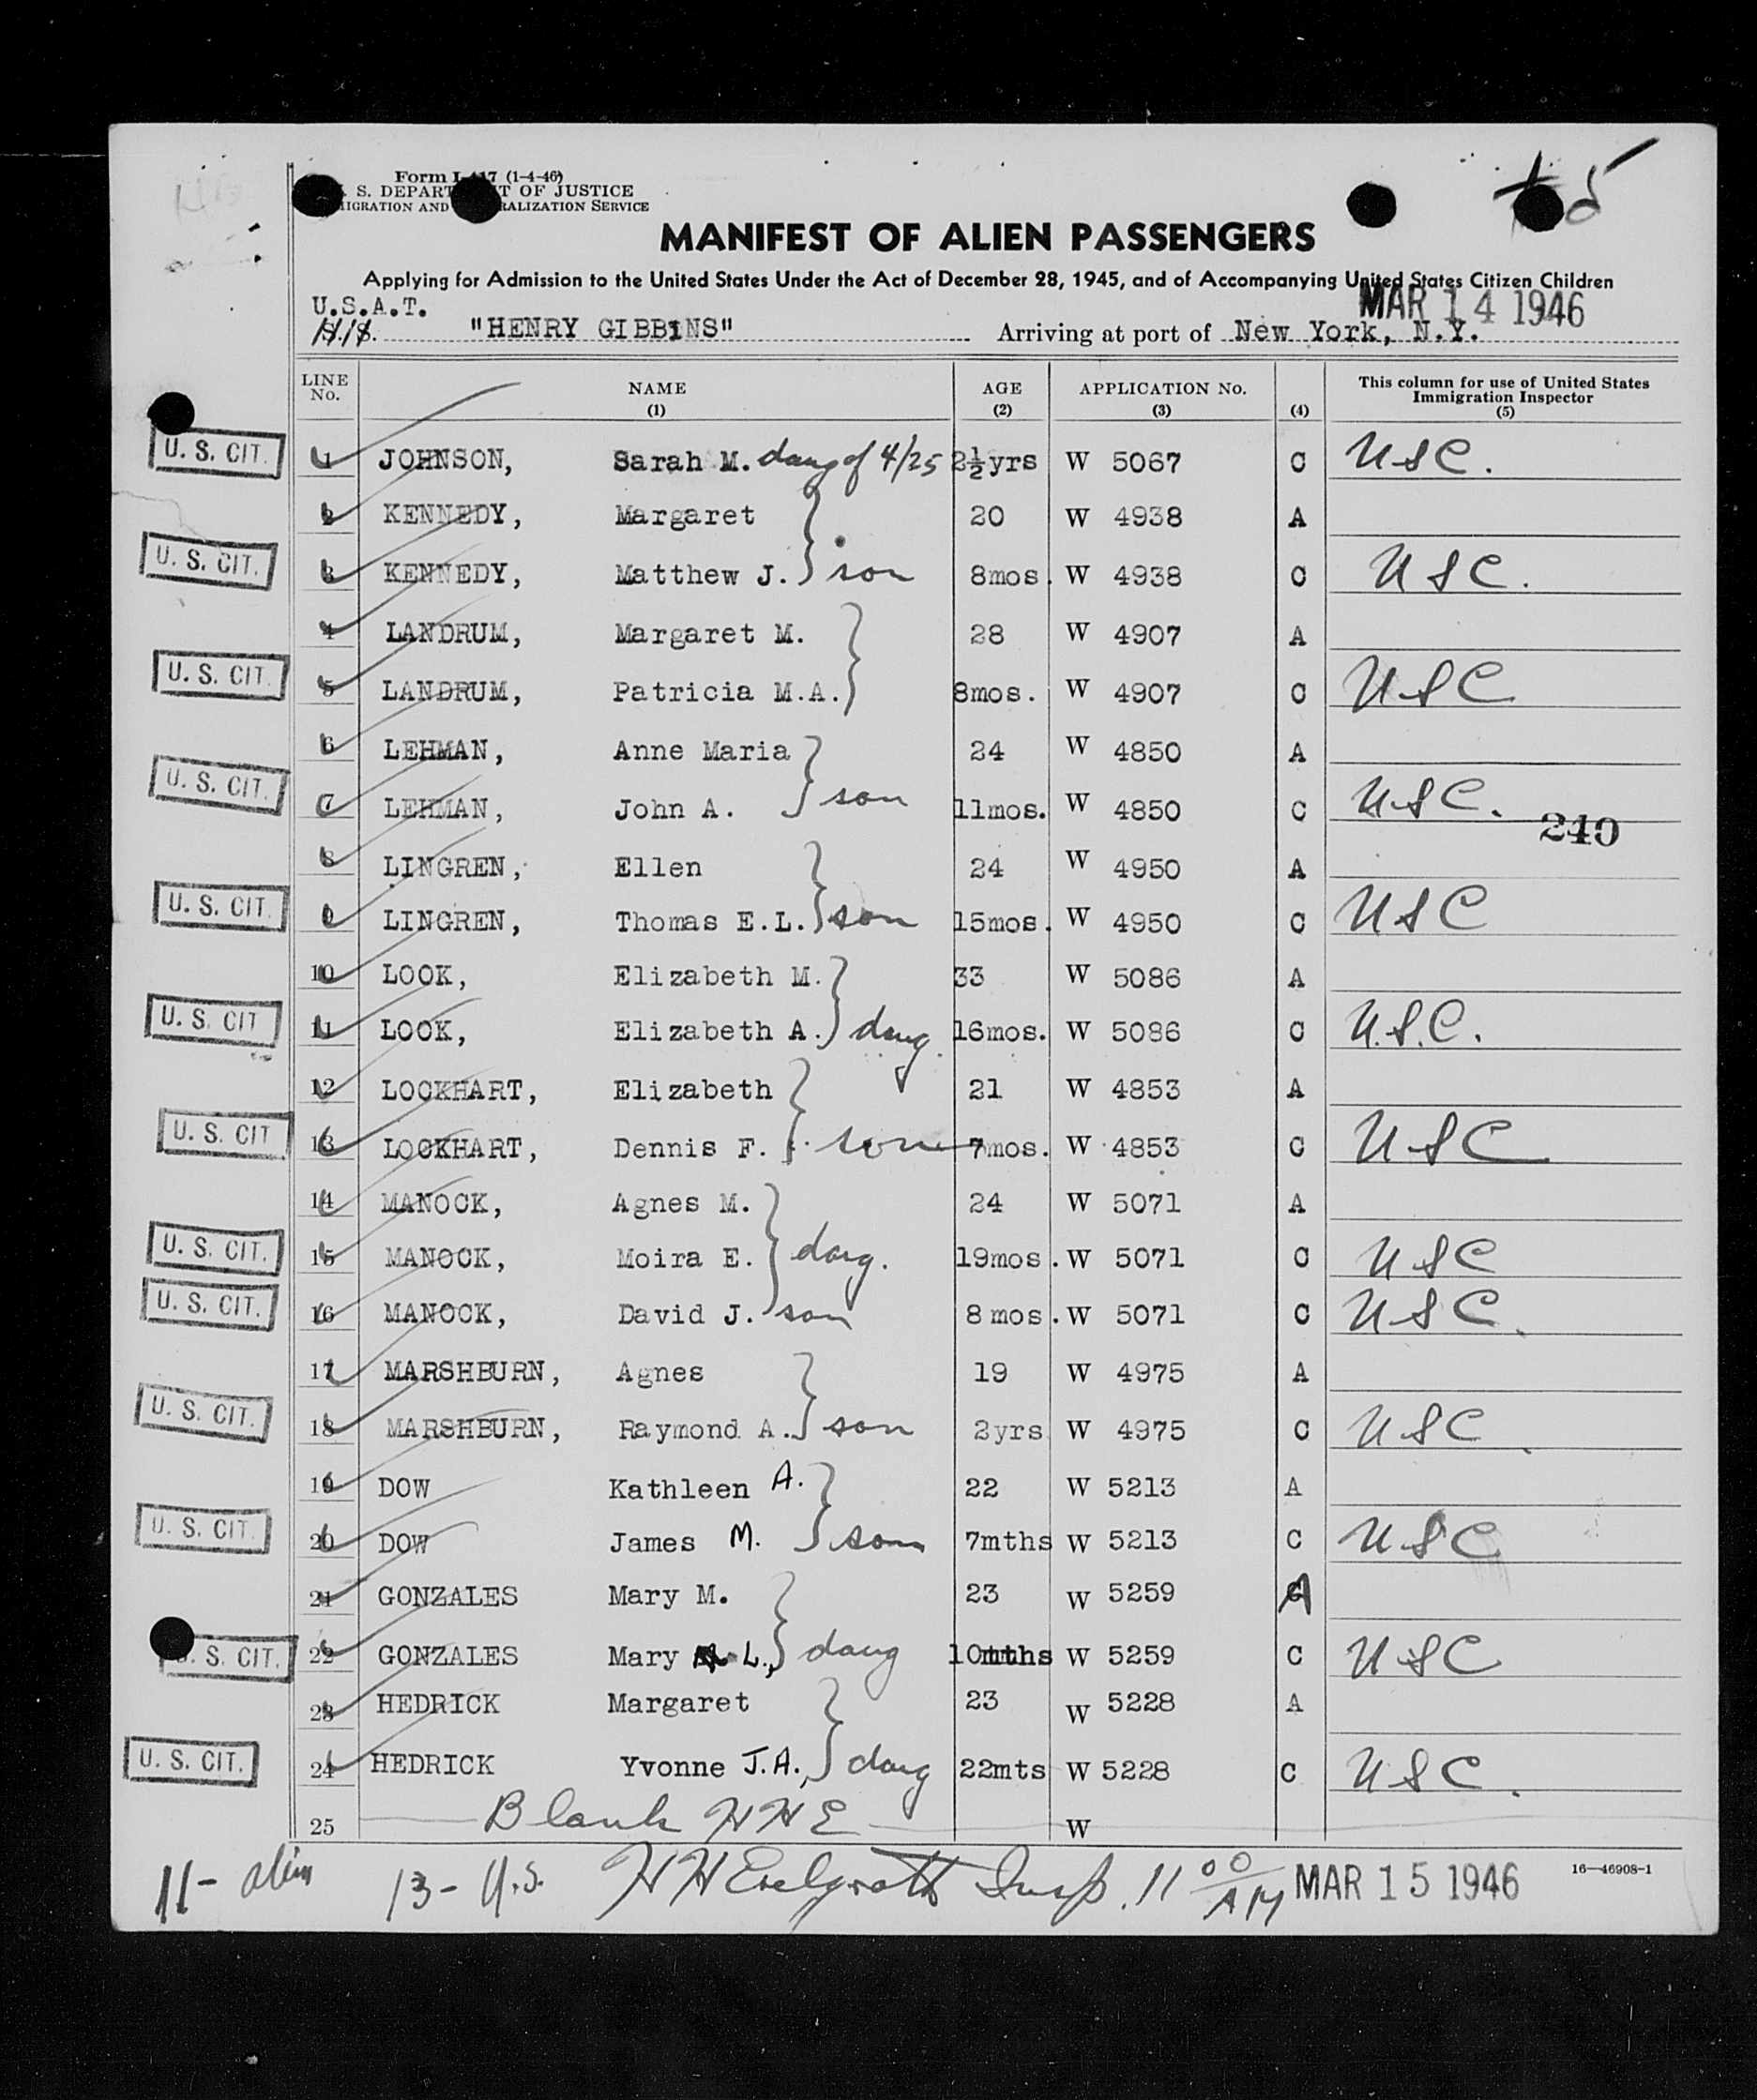 Form I-417 (1-4-46)
S. DEPARTMENT OF JUSTICE
IGRATION AND NATURALIZATION SERVICE
MANIFEST OF ALIEN PASSENGERS
Applying for Admission to the United States Under the Act of December 28, 1945, and of Accompanying United States Citizen Children
MAR 14 1946
U.S.A.T.
"HENRY GIBBINS" Arriving at port of New York, N.Y.
LINE No. NAME (1) AGE (2) APPLICATION No. (3) (4) This column for use of United States Immigration Inspector (5)
U. S. CIT. 1 JOHNSON, Sarah M. daug of 4/25 2½yrs W 5067 C USC.
2 KENNEDY, Margaret 20 W 4938 A
U. S. CIT. 3 KENNEDY, Matthew J. son 8mos. W 4938 C USC.
4 LANDRUM, Margaret M. 28 W 4907 A
U. S. CIT. 5 LANDRUM, Patricia M.A. 8mos. W 4907 C USC
6 LEHMAN, Anne Maria 24 W 4850 A
U. S. CIT. 7 LEHMAN, John A. son 11mos. W 4850 C USC.
240
8 LINGREN, Ellen 24 W 4950 A
U. S. CIT. 9 LINGREN, Thomas E.L. son 15mos. W 4950 C USC
10 LOOK, Elizabeth M. 33 W 5086 A
U. S. CIT 11 LOOK, Elizabeth A. daug. 16mos. W 5086 C U.S.C.
12 LOCKHART, Elizabeth 21 W 4853 A
U. S. CIT 13 LOCKHART, Dennis F. son 7mos. W 4853 C USC
14 MANOCK, Agnes M. 24 W 5071 A
U. S. CIT. 15 MANOCK, Moira E. daug. 19mos. W 5071 C USC
U. S. CIT. 16 MANOCK, David J. son 8 mos. W 5071 C USC.
17 MARSHBURN, Agnes 19 W 4975 A
U. S. CIT. 18 MARSHBURN, Raymond A. son 2yrs W 4975 C USC
19 DOW Kathleen A. 22 W 5213 A
U. S. CIT. 20 DOW James M. son 7mths W 5213 C USC
21 GONZALES Mary M. 23 W 5259 A
S. CIT. 22 GONZALES Mary L. daug 10mths W 5259 C USC
23 HEDRICK Margaret 23 W 5228 A
U. S. CIT. 24 HEDRICK Yvonne J.A. daug 22mts W 5228 C USC.
25 Blank HHE W
16—46908-1
11- alien 13- U.S. HH Insp. 11 00 AM MAR 15 1946